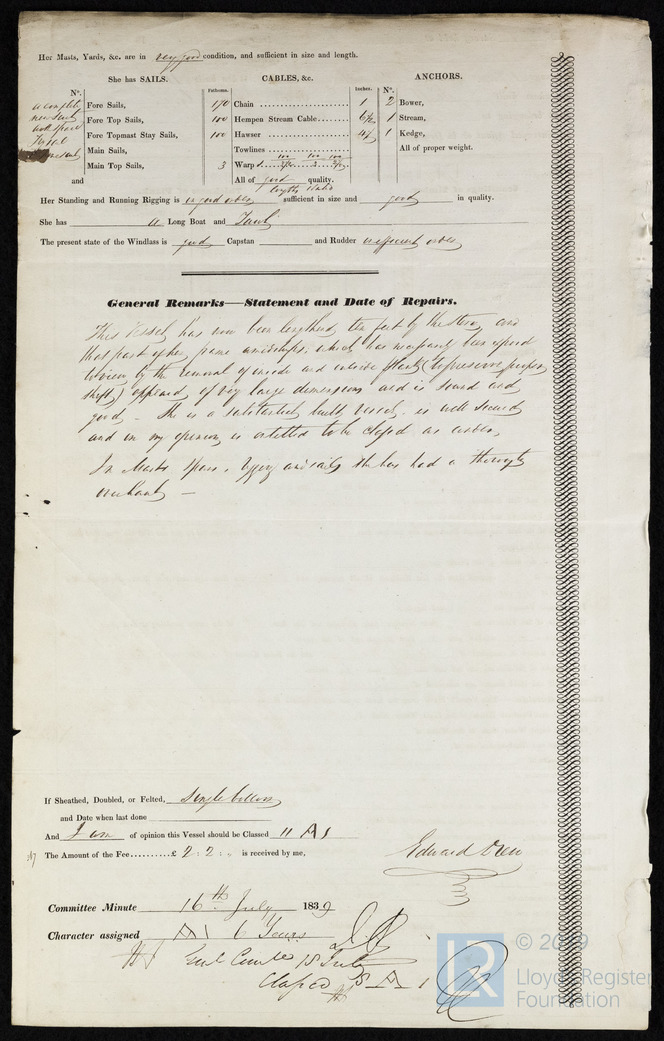 Her Masts, Yards, &c. are in very good condition, and sufficient in size and length.
She has SAILS. CABLES, &c. ANCHORS.
N°. Fathoms. Inches. N°.
a complete Fore Sails, 170 Chain 1 2 Bower,
new suit Fore Top Sails, 100 Hempen Stream Cable 6½ 1 Stream,
Fore Topmast Stay Sails, 100 Hawser 4½ 1 Kedge,
Main Sails, Towlines All of proper weight.
Main Top Sails, 3 Warp
and All of good quality.
lengths
Her Standing and Running Rigging is in good order sufficient in size and good in quality.
She has a Long Boat and
The present state of the Windlass is good Capstan and Rudder in efficient order
General Remarks—Statement and Date of Repairs.
This Vessel has now been lengthened ten feet by the Stern, and
that part of her frame amidships, which has been exposed
to view by the removal of inside and outside Plank (to preserve proper
shift) appeared of very large dimensions and is sound and
good – She is a substantial built vessel, is well secured
and in my opinion is entitled to be classed as under,
In Masts Spars, Rigging and sails she has had a thorough
overhaul –
If Sheathed, Doubled, or Felted, Single bottom
and Date when last done
And I am of opinion this Vessel should be Classed 11 A 1
The Amount of the Fee £ 2 : 2 : „ is received by me,
Edward
Committee Minute 16th July 1839
Character assigned A 1 6 Years
18 July
Classed 8 A 1
LR
© 2019
Lloyd's Register
Foundation